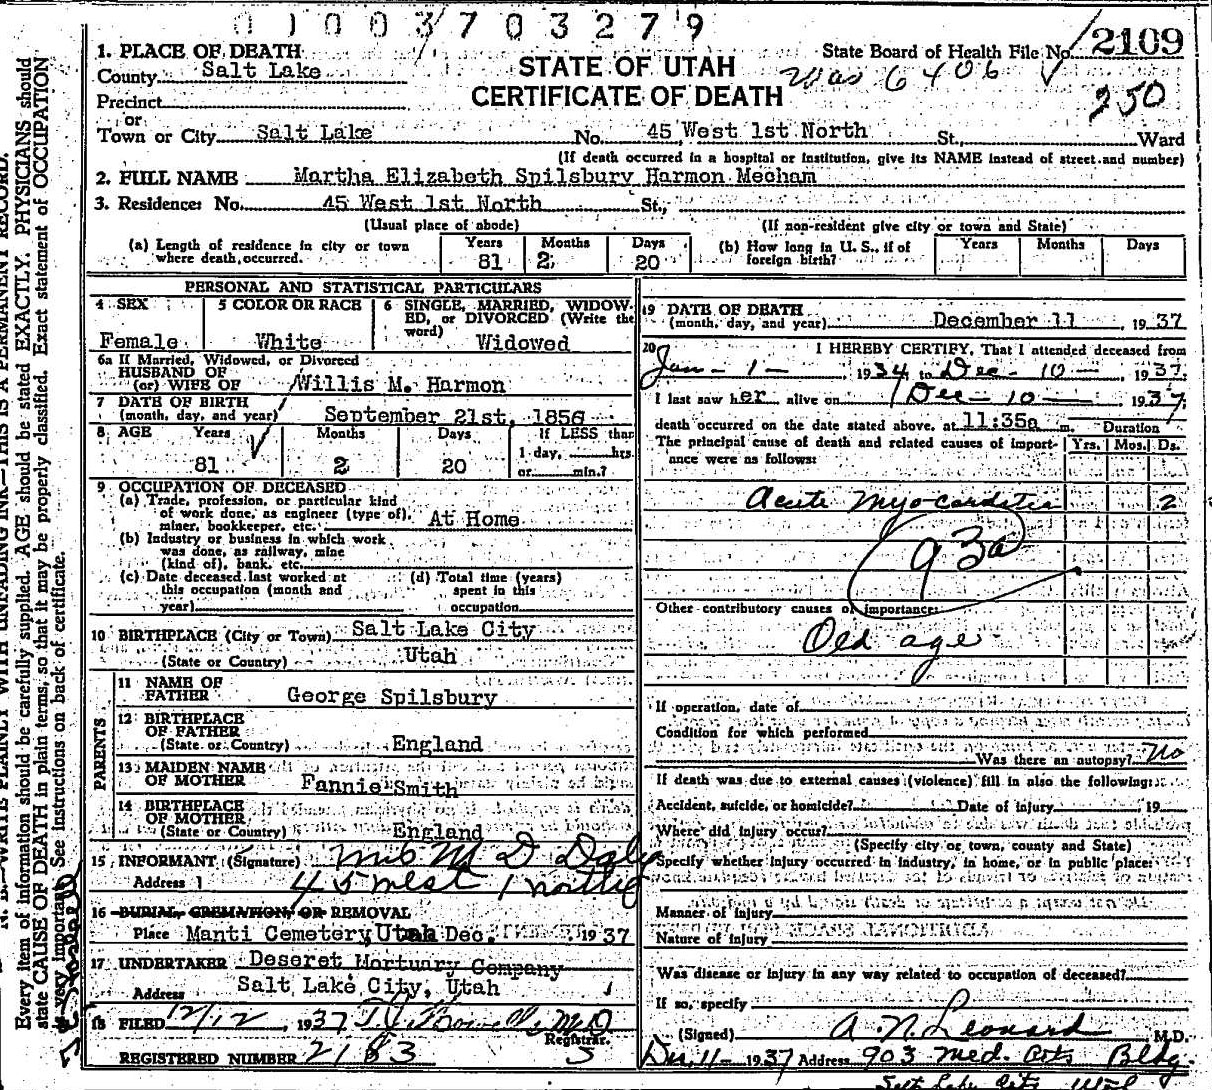 01003703279
2109
1. PLACE OF DEATH
State Board of Health File No.
County Salt Lake
STATE OF UTAH
was 6406
Precinct
CERTIFICATE OF DEATH
250
or
Town or City Salt Lake No. 45 West 1st North St., Ward
(If death occurred in a hospital or institution, give its NAME instead of street and number)
2. FULL NAME Martha Elizabeth Spilsbury Harmon Mecham
3. Residence: No. 45 West 1st North St.,
(Usual place of abode) (If non-resident give city or town and State)
(a) Length of residence in city or town where death occurred. Years 81 Months 2 Days 20
(b) How long in U. S., if of foreign birth? Years Months Days
PERSONAL AND STATISTICAL PARTICULARS
4 SEX Female
5 COLOR OR RACE White
6 SINGLE, MARRIED, WIDOWED, or DIVORCED (Write the word) Widowed
6a If Married, Widowed, or Divorced
HUSBAND OF
(or) WIFE OF Willis M. Harmon
7 DATE OF BIRTH
(month, day, and year) September 21st, 1856
8 AGE Years 81 Months 2 Days 20
If LESS than 1 day, hrs. or min.?
9 OCCUPATION OF DECEASED
(a) Trade, profession, or particular kind
of work done, as engineer (type of),
miner, bookkeeper, etc. At Home
(b) Industry or business in which work
was done, as railway, mine
(kind of), bank, etc.
(c) Date deceased last worked at
this occupation (month and
year)
(d) Total time (years)
spent in this
occupation
10 BIRTHPLACE (City or Town) Salt Lake City
(State or Country) Utah
PARENTS
11 NAME OF
FATHER George Spilsbury
12 BIRTHPLACE
OF FATHER
(State or Country) England
13 MAIDEN NAME
OF MOTHER Fannie Smith
14 BIRTHPLACE
OF MOTHER
(State or Country) England
15 INFORMANT (Signature) Mrs M D Daly
Address 45 West 1 North
16 BURIAL, CREMATION, OR REMOVAL
Place Manti Cemetery, Utah Dec. 1937
17 UNDERTAKER Deseret Mortuary Company
Address Salt Lake City, Utah
18 FILED 12/12, 1937 M D
Registrar.
REGISTERED NUMBER 2183
19 DATE OF DEATH
(month, day, and year) December 11, 1937
20 I HEREBY CERTIFY, That I attended deceased from
Jan - 1 -, 1934 to Dec - 10 -, 1937
I last saw her alive on Dec - 10 -, 1937
death occurred on the date stated above, at 11:35a m.
Duration
The principal cause of death and related causes of importance were as follows: Yrs. Mos. Ds.
Acute Myocarditis 2
93a
Other contributory causes of importance:
Old age
If operation, date of
Condition for which performed
Was there an autopsy? No
If death was due to external causes (violence) fill in also the following:
Accident, suicide, or homicide? Date of injury 19
Where did injury occur?
(Specify city or town, county and State)
Specify whether injury occurred in industry, in home, or in public place:
Manner of injury
Nature of injury
Was disease or injury in any way related to occupation of deceased?
If so, specify
(Signed) A. N. Leonard M.D.
Dec. 11 - 1937 Address 903 Med. Arts Bldg.
Salt Lake City Utah
N. B.—WRITE PLAINLY WITH UNFADING INK—THIS IS A PERMANENT RECORD.
Every item of information should be carefully supplied. AGE should be stated EXACTLY. PHYSICIANS should
state CAUSE OF DEATH in plain terms, so that it may be properly classified. Exact statement of OCCUPATION
is very important. See instructions on back of certificate.